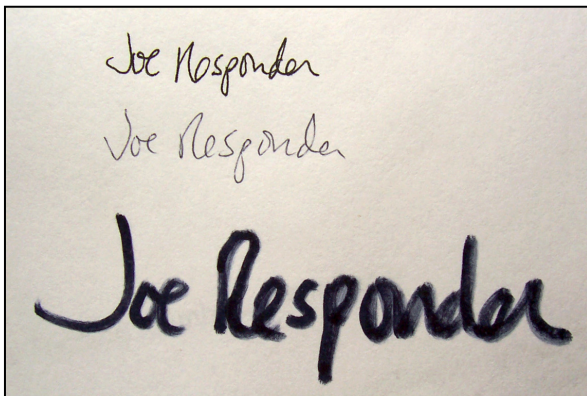 Joe Responder
Joe Responder
Joe Responder